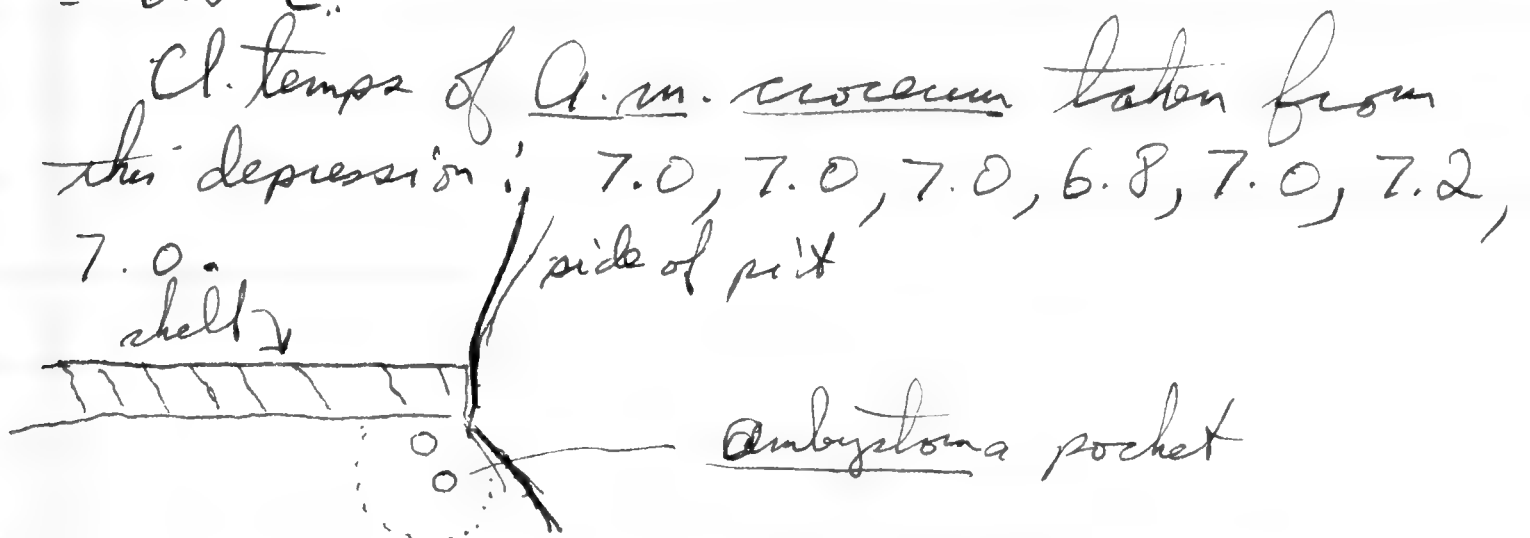 Cl. temps of A. m. croceum taken from
this depression: 7.0, 7.0, 7.0, 6.8, 7.0, 7.2,
7.0.
side of pit
shelf
Ambystoma pocket